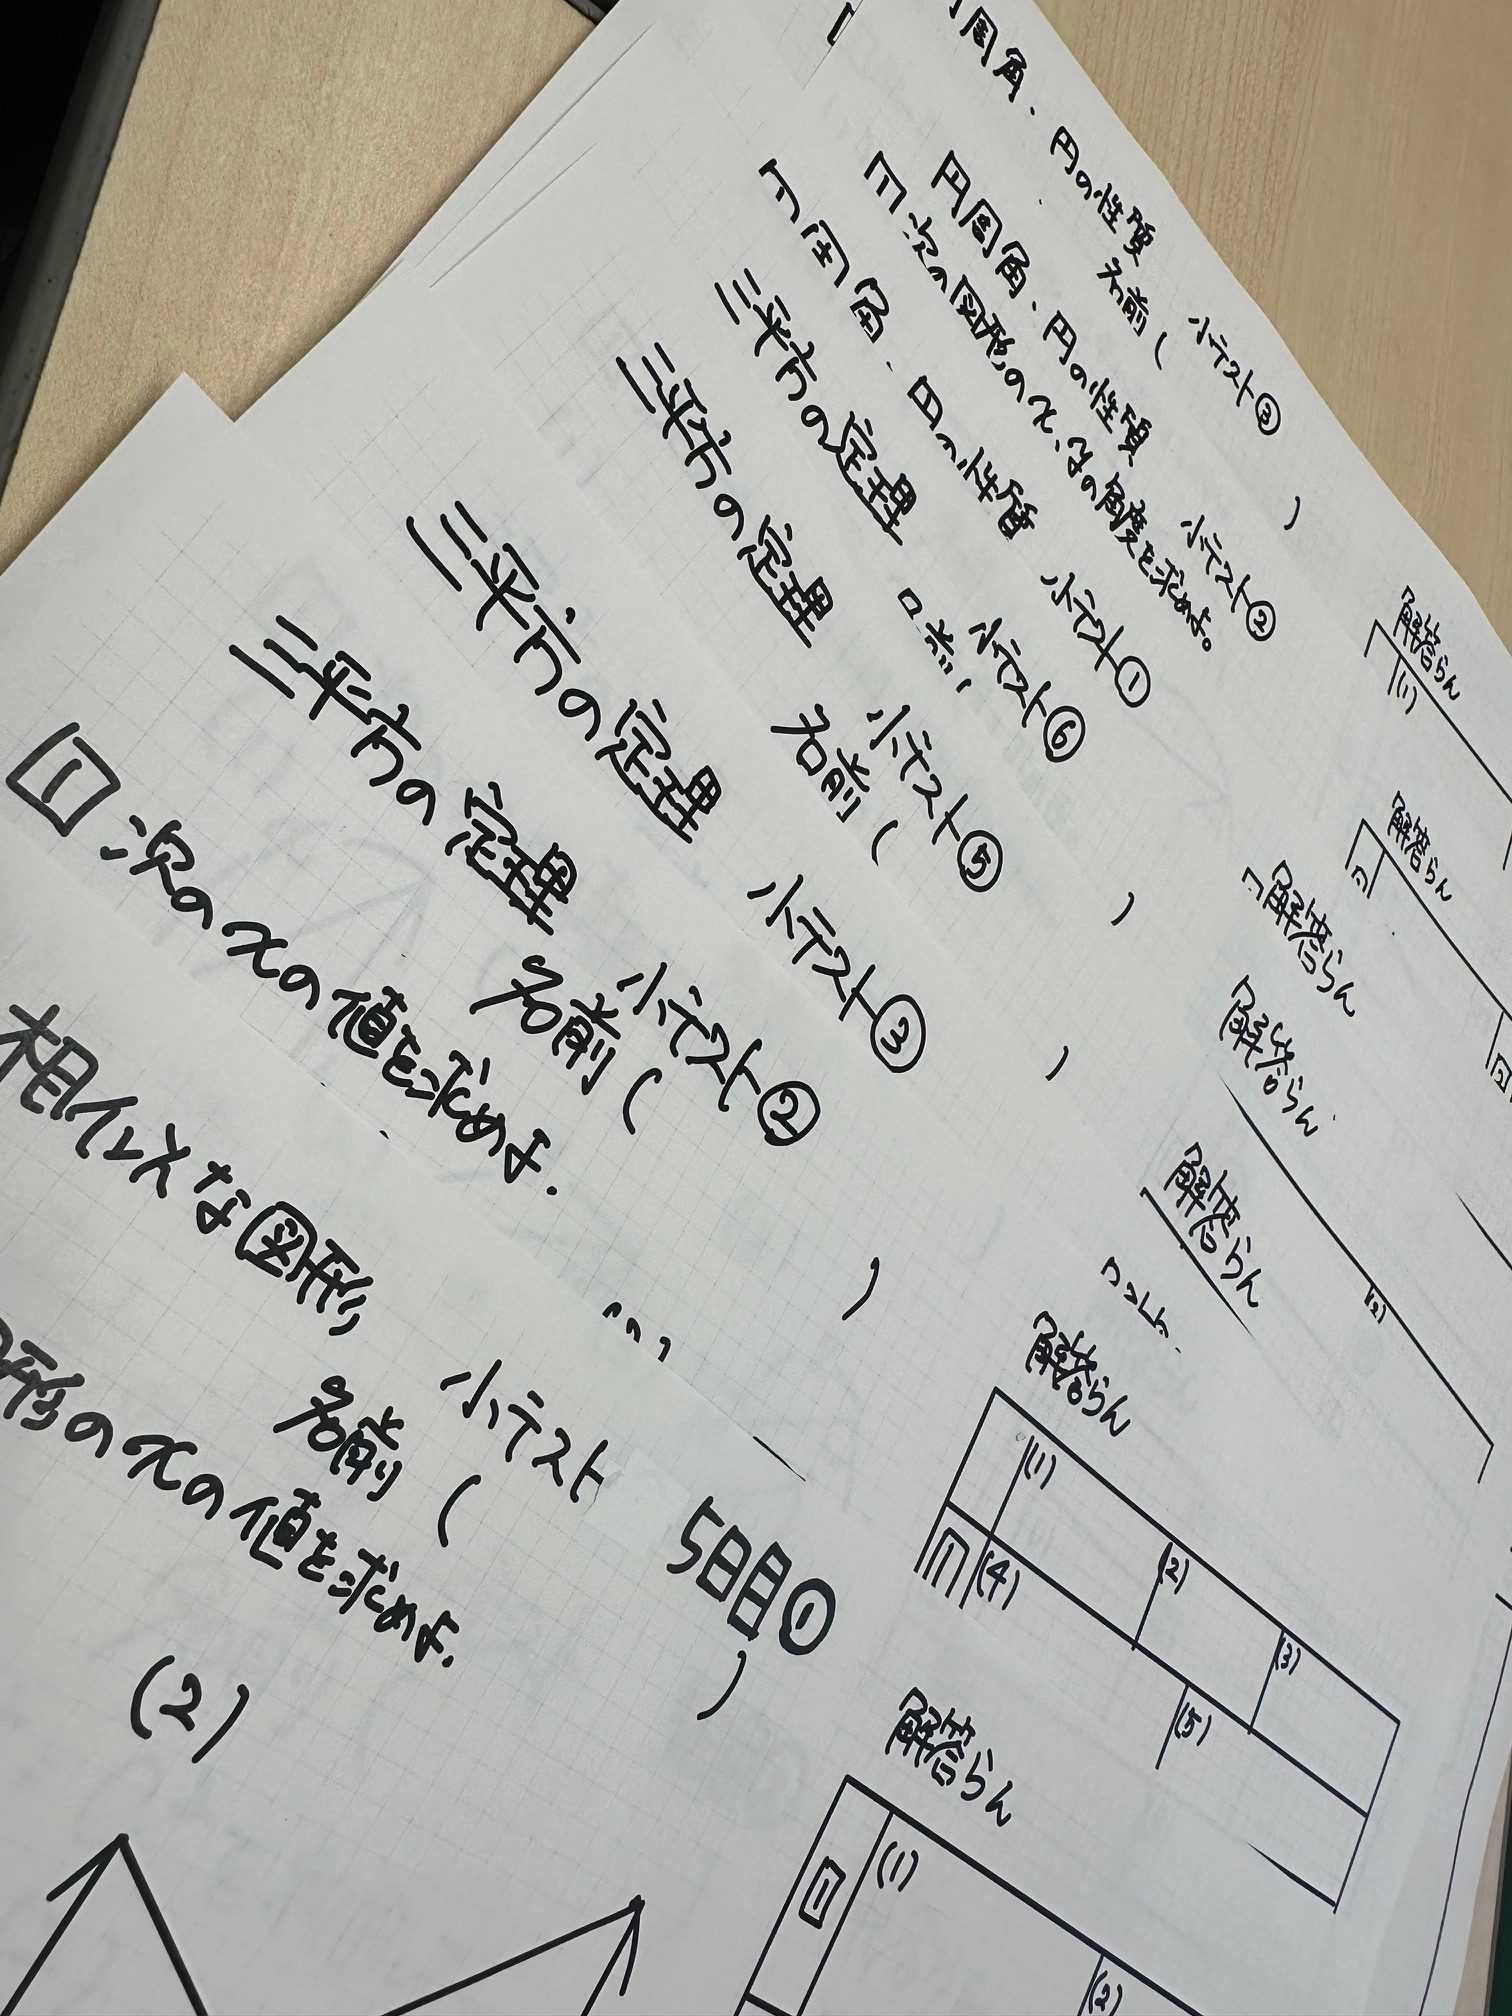 周角、円の性質 小テスト③
名前( )
円周角、円の性質 小テスト②
次の図形のx、yの角度を求めよ。
小テスト①
三平方の定理 小テスト⑥
三平方の定理 小テスト⑤
名前( )
三平方の定理 小テスト③
三平方の定理 小テスト②
名前( )
1 次のxの値を求めよ.
相似な図形 小テスト 5日目①
名前( )
形のxの値を求めよ.
(2)
解答らん
(1)
解答らん
解答らん
解答らん
(2)
解答らん
解答らん
(1) (2) (3)
(4) (5)
解答らん
1 (1) (2)